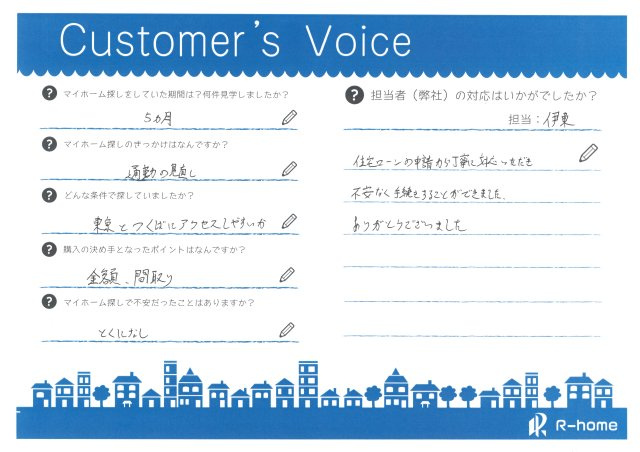 Customer's Voice
? マイホーム探しをしていた期間は？何件見学しましたか？
5ヵ月
? マイホーム探しのきっかけはなんですか？
通勤の見直し
? どんな条件で探していましたか？
東京とつくばにアクセスしやすいか
? 購入の決め手となったポイントはなんですか？
金額、間取り
? マイホーム探しで不安だったことはありますか？
とくになし
? 担当者（弊社）の対応はいかがでしたか？
担当：伊東
住宅ローンの申請から丁寧に対応いただき
不安なく手続きすることができました。
ありがとうございました
R-home